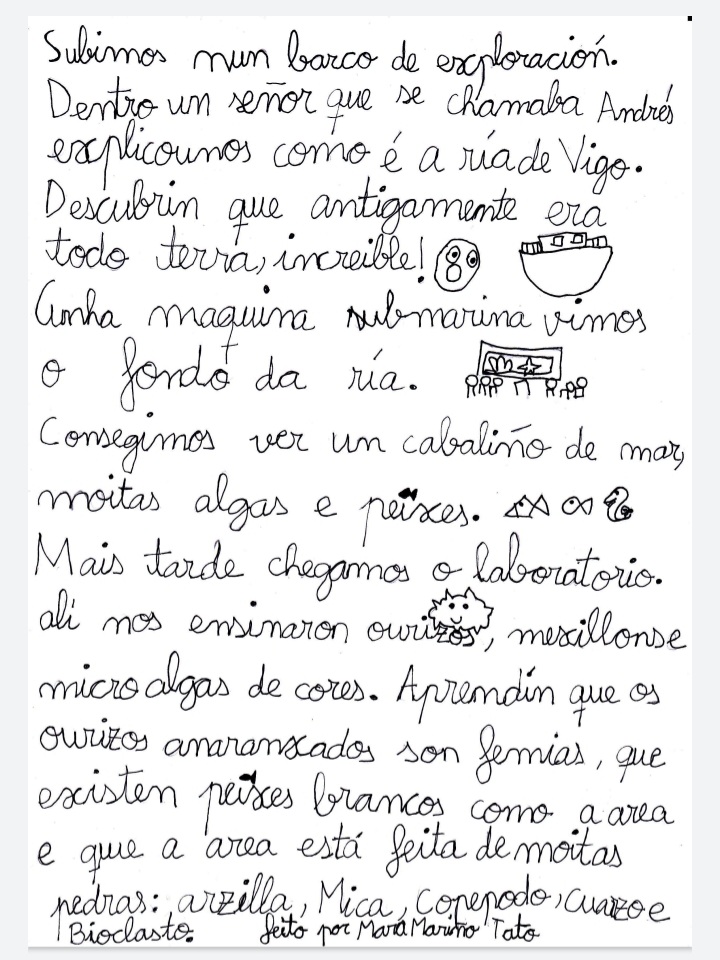 Subimos nun barco de exploración.
Dentro un señor que se chamaba Andrés
explicounos como é a ría de Vigo.
Descubrin que antigamente era
todo terra, increible!
Cunha maquina submarina vimos
o fondo da ría.
Consegimos ver un cabaliño de mar,
moitas algas e peixes.
Mais tarde chegamos o laboratorio.
alí nos ensinaron ourizos, mexillons e
micro algas de cores. Aprendín que os
ourizos anaranxados son femias, que
existen peixes brancos como a area
e que a area está feita de moitas
pedras: arzilla, Mica, Copepodo, cuarzo e
Bioclasto. feito por Mara Mariño Tato